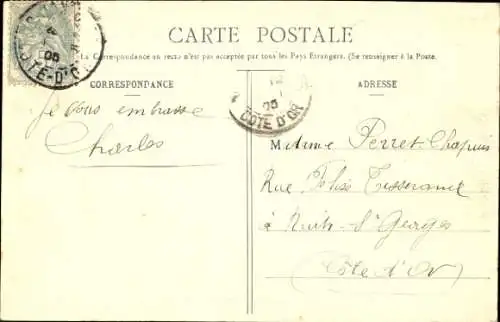 CARTE POSTALE
La Correspondance au recto n'est pas acceptée par tous les Pays Etrangers. (Se renseigner à la Poste.
CORRESPONDANCE
ADRESSE
CÔTE-D'OR
05
CÔTE D'OR
05
Je vous embrasse
Charles
Madame Perret-Chapuis
Rue Tisserand
à Nuits-St Georges
Côte d'Or